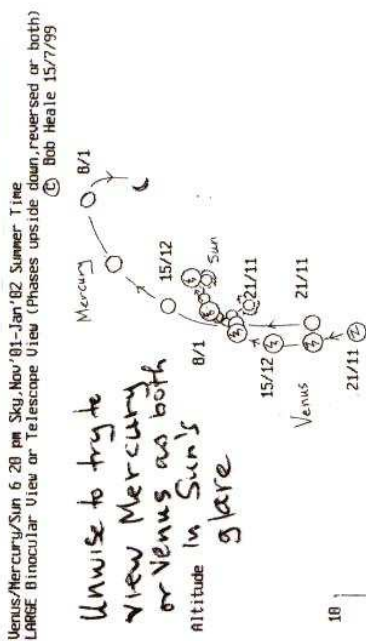 Venus/Mercury/Sun 6 20 pm Sky,Nov'01-Jan'02 Summer Time
LARGE Binocular View or Telescope View (Phases upside down,reversed or both)
© Bob Heale 15/7/99
Unwise to try to
view Mercury
or Venus as both
Altitude in Sun's
glare
Mercury
8/1
15/12
Sun
8/1
21/11
15/12
21/11
Venus
21/11
10